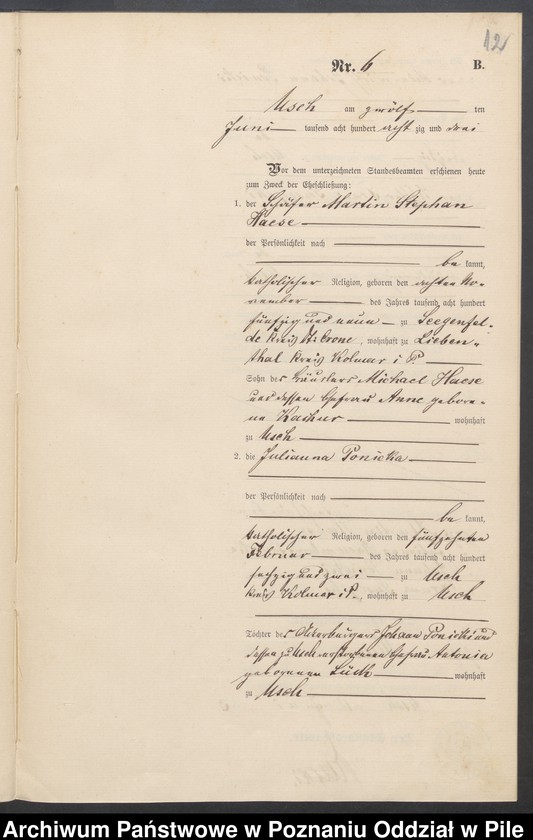 12
Nr. 6 B.
Usch am zwölf ten
Juni tausend acht hundert acht zig und drei
Vor dem unterzeichneten Standesbeamten erschienen heute
zum Zweck der Eheschließung:
1. der Schäfer Martin Stephan
Haese
der Persönlichkeit nach
be kannt,
katholischer Religion, geboren den achten No-
vember des Jahres tausend acht hundert
fünfzig und neun zu Seegenfel-
de Kreis Dt. Crone, wohnhaft zu Lieben-
thal Kreis Kolmar i P.
Sohn des Häuslers Michael Haese
und dessen Ehefrau Anne gebore-
ne wohnhaft
zu Usch
2. die Julianna Ponicka
der Persönlichkeit nach
be kannt,
katholischer Religion, geboren den fünfzehnten
Februar des Jahres tausend acht hundert
sechzig und zwei zu Usch
Kreis Kolmar i P., wohnhaft zu Usch
Tochter des Ackerbürgers Johann Ponicki und
dessen zu Usch verstorbenen Ehefrau Antonia
geborenen Lück wohnhaft
zu Usch
Archiwum Państwowe w Poznaniu Oddział w Pile